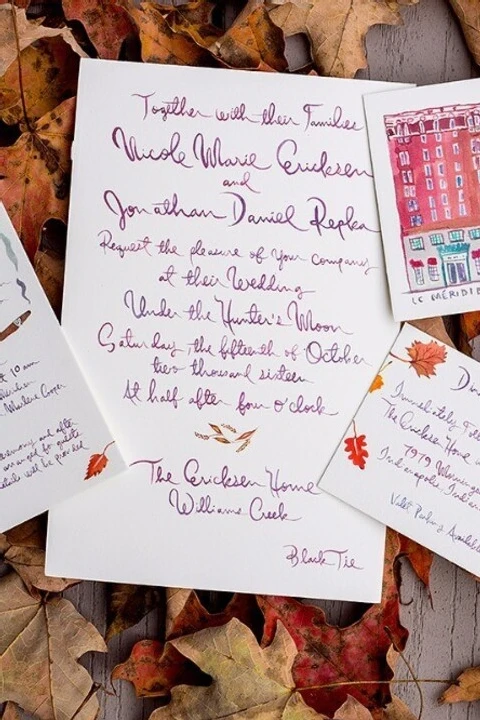 Together with their Families
Nicole Marie Ericksen
and
Jonathan Daniel Repka
Request the pleasure of Your company
at their Wedding
Under the Hunter's Moon
Saturday, the fifteenth of October
two thousand sixteen
At half after four o'clock
The Ericksen Home
Williams Creek
Black Tie
LE MÉRIDI
Immediately Foll
The Ericksen Home
1979
Indianapolis, Indian
Valet Parking Available
of 10 am
Marlene Cooper
ceremony and after
arranged for guests
details will be provided